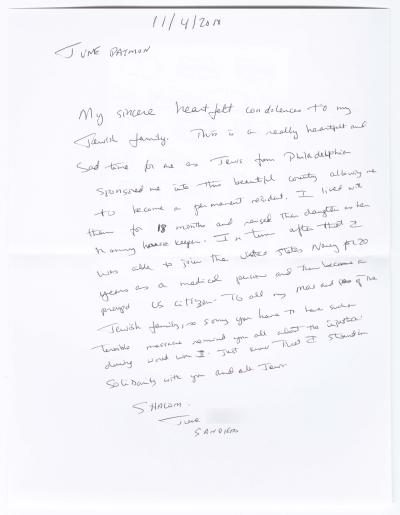 11/4/2018
June Patmon
My sincere heartfelt condolences to my
Jewish family. This is a really heartfelt and
sad time for me as Jews from Philadelphia
sponsored me into this beautiful country allowing me
to become a permanent resident. I lived with
them for 18 months and raised their daughter as her
nanny house keeper. In turn after that I
was able to join the United States Navy for 20
years as a medical person and then became a
proud US citizen. To all my
Jewish family, so sorry you have to have such a
terrible massacre remind you all about the injustice
during world war I. Just know that I stand in
solidarity with you and all Jews
Shalom.
June
Sanders